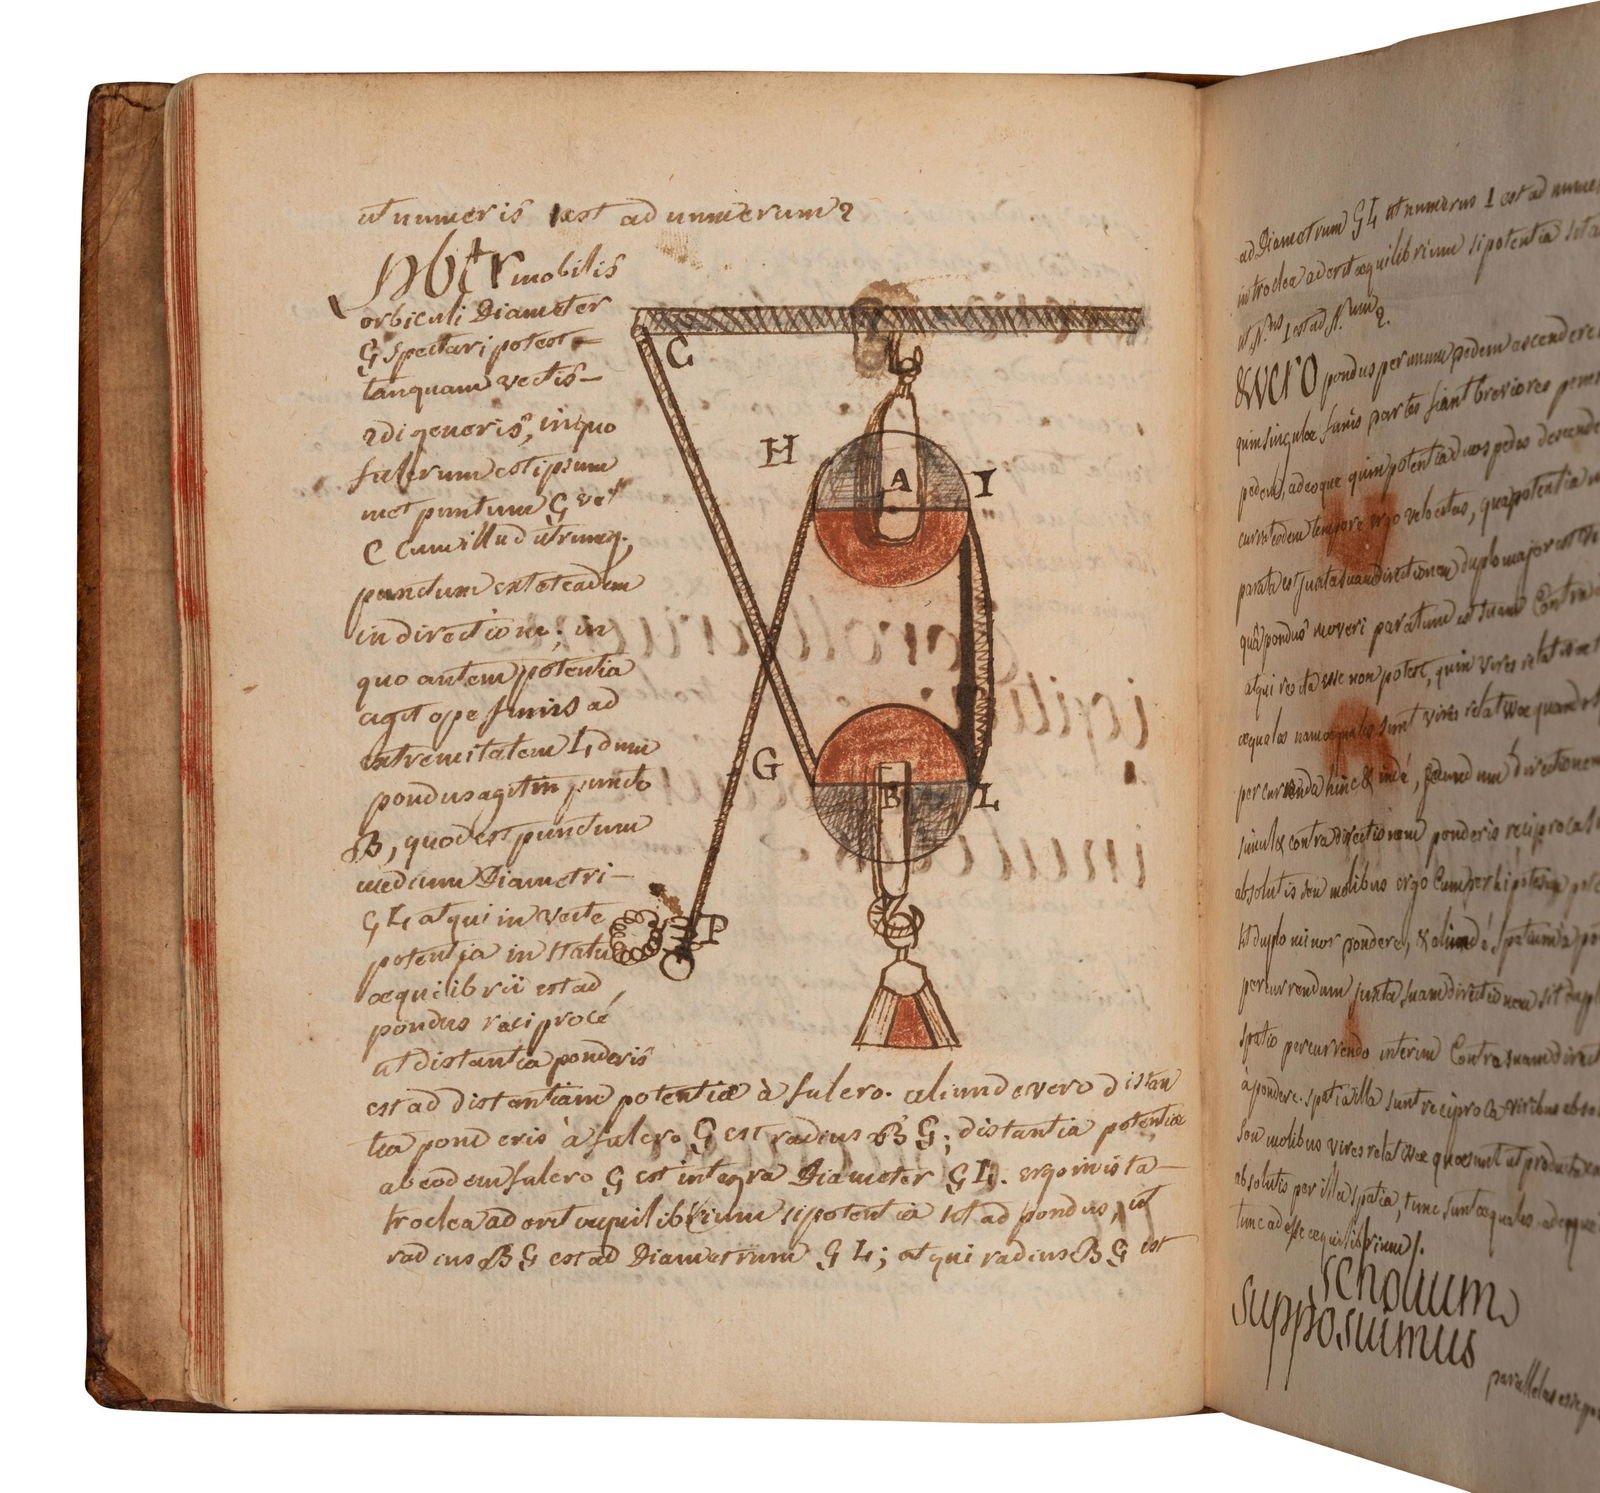 ut numeris 1 est ad numerum 2
mobilis
orbiculi Diameter
G spectari potest
tanquam vectis
2di generis, in quo
fulcrum est ipsum
met punctum G vel
C cum illud utrumq;
punctum extet eadem
in directione; in
quo autem potentia
agit ope funis ad
extremitatem L, dum
pondus agit in puncto
B, quod est punctum
medium Diametri
GL atqui in vecte
potentia in statu
æquilibrii est ad
pondus reciprocé
ut distantia ponderis
est ad distantiam potentiæ à fulcro. aliunde vero distan
tia ponderis à fulcro G est radius BG; distantia potentiæ
ab eodem fulcro G est integra Diameter GL. ergo in ista
troclea aderit æquilibrium si potentia sit ad pondus, ut
radius BG est ad Diametrum GL; atqui radius BG est
C
H
A
I
G
B
L
P
ad Diametrum GL ut numerus 1 est ad nume
in troclea aderit æquilibrium si potentia sit a
ut N.us 1 est ad N.um 2.
&vero pondus per unum pedem ascendere
quin singulæ funis partes fiant breviores
pedem, adeoque quin potentia duos pedes descende
eodem tempore ergo velocitas, qua potentia
parata est juxta suam directionem duplo major est
quâ pondus moveri paratum est suam Contra
atqui res ita esse non potest, quin vires relativæ
æquales nam æquales sunt vires relativæ quando
percurrenda hinc & inde, secundum directionem
simul & contra directionem ponderis reciproca
absolutis seu molibus ergo Cum per hipotesim
sit duplo minor pondere, & aliundé spatium a
percurrendum juxta suam directionem sit dupl
spatio percurrendo interim Contra suam direct
à pondere. spatia illa sunt reciproca viribus abso
seu molibus vires relativæ quæ sunt ut producta
absolutis per illa spatia, tunc sunt æquales adeoque
tunc adesse æquilibrium.
scholium
supposuimus
parallelas esse